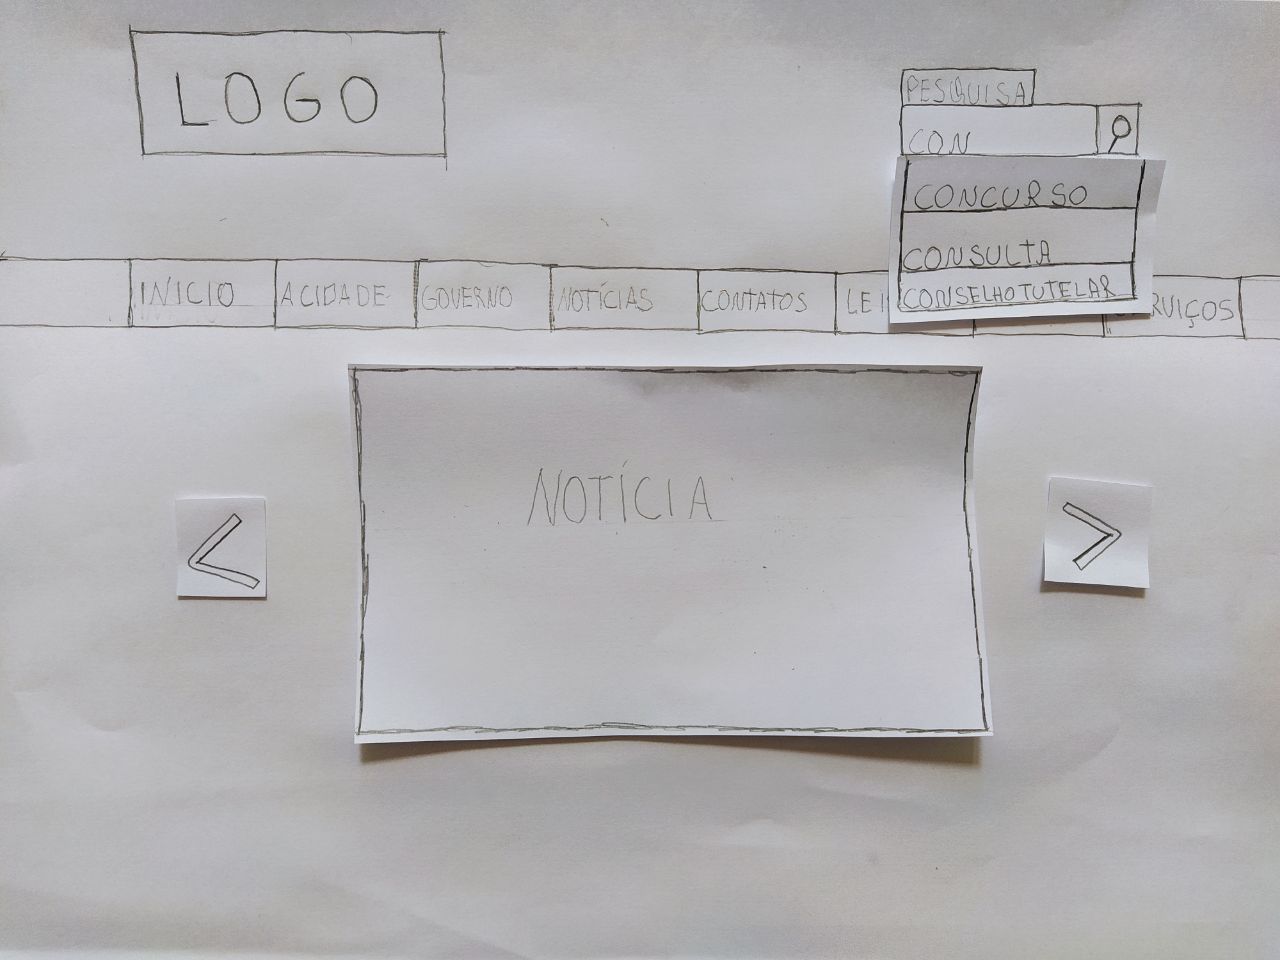 LOGO
PESQUISA
CON
CONCURSO
CONSULTA
CONSELHO TUTELAR
INICIO A CIDADE GOVERNO NOTÍCIAS CONTATOS LEI RVIÇOS
NOTÍCIA